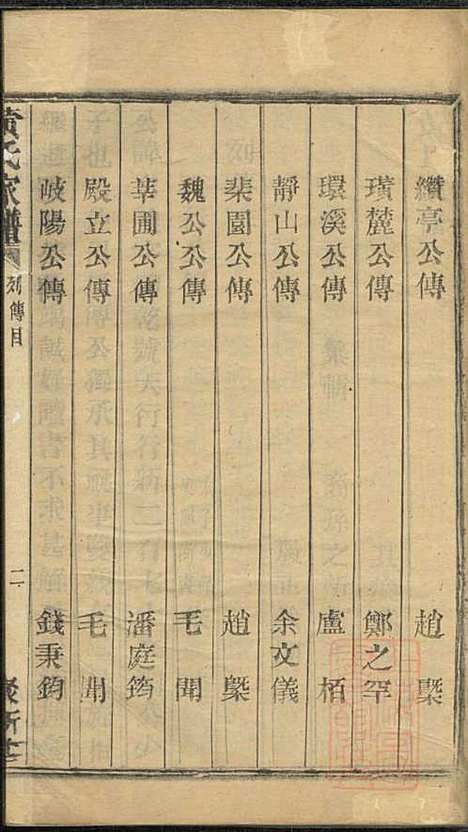 纘亭公傳 趙檠
璜麓公傳 鄭之罕
環溪公傳 盧栢
靜山公傳 余文儀
棐園公傳 趙檠
魏公公傳 毛聞
莘圃公傳 潘庭筠
殿立公傳 毛聞
岐陽公傳 錢秉鈞
黃氏家譜 列傳目 二